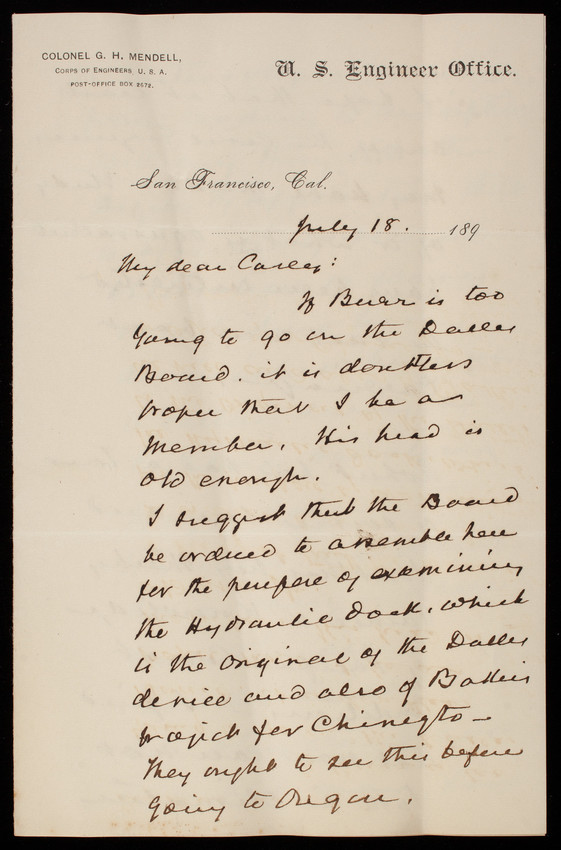 COLONEL G. H. MENDELL,
CORPS OF ENGINEERS, U. S. A.
POST-OFFICE BOX 2572.
U. S. Engineer Office.
San Francisco, Cal.
July 18. 189
My dear Casey:
If Burr is too
young to go on the Dalles
Board. it is doubtless
proper that I be a
member. His head is
old enough.
I suggest that the Board
be ordered to assemble here
for the purpose of examining
the Hydraulic dock. which
is the original of the Dalles
device and also of
project for Chinegto –
They ought to see this before
going to Oregon.